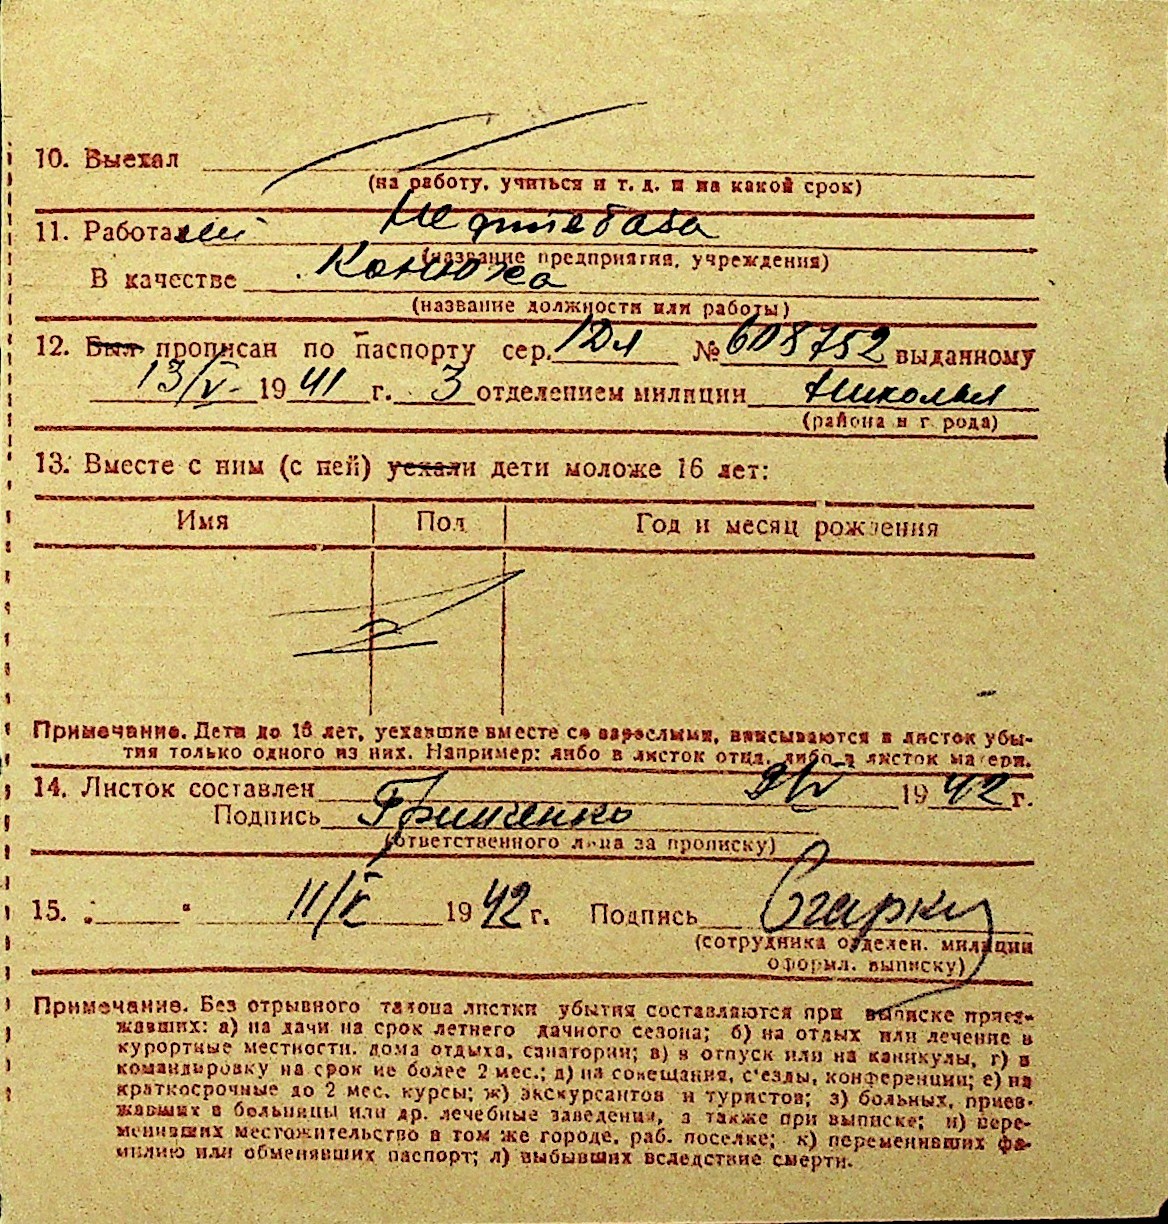 10. Выехал
(на работу, учиться и т. д. и на какой срок)
11. Работает Нефтебаза
(название предприятия, учреждения)
В качестве Конюха
(название должности или работы)
12. Был прописан по паспорту сер. № 608752 выданному
13/V 1941 г. 3 отделением милиции Николая
(района и города)
13. Вместе с ним (с ней) уехали дети моложе 16 лет:
Имя Пол Год и месяц рождения
Примечание. Дети до 16 лет, уехавшие вместе со взрослыми, вписываются в листок убы-
тия только одного из них. Например: либо в листок отца, либо в листок матери.
14. Листок составлен 9/V 1942 г.
Подпись Гринченко
(ответственного лица за прописку)
15. „ " 11/V 1942 г. Подпись
(сотрудника отделен. милиции
оформл. выписку)
Примечание. Без отрывного талона листки убытия составляются при выписке приез-
жавших: а) на дачи на срок летнего дачного сезона; б) на отдых или лечение в
курортные местности, дома отдыха, санатории; в) в отпуск или на каникулы, г) в
командировку на срок не более 2 мес.; д) на совещания, с'езды, конференции; е) на
краткосрочные до 2 мес. курсы; ж) экскурсантов и туристов; з) больных, приез-
жавших в больницы или др. лечебные заведения, а также при выписке; и) пере-
менивших местожительство в том же городе, раб. поселке; к) переменивших фа-
милию или обменявших паспорт; л) выбывших вследствие смерти.